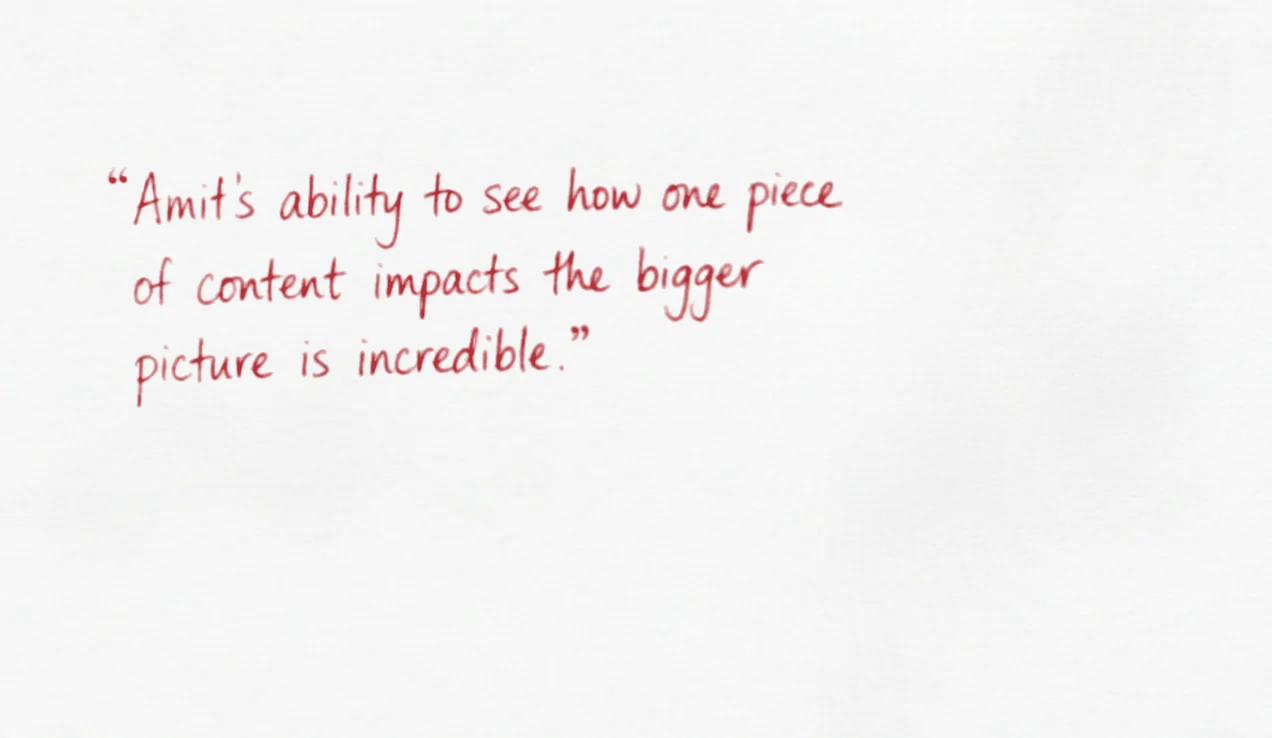 “Amit's ability to see how one piece
of content impacts the bigger
picture is incredible.”